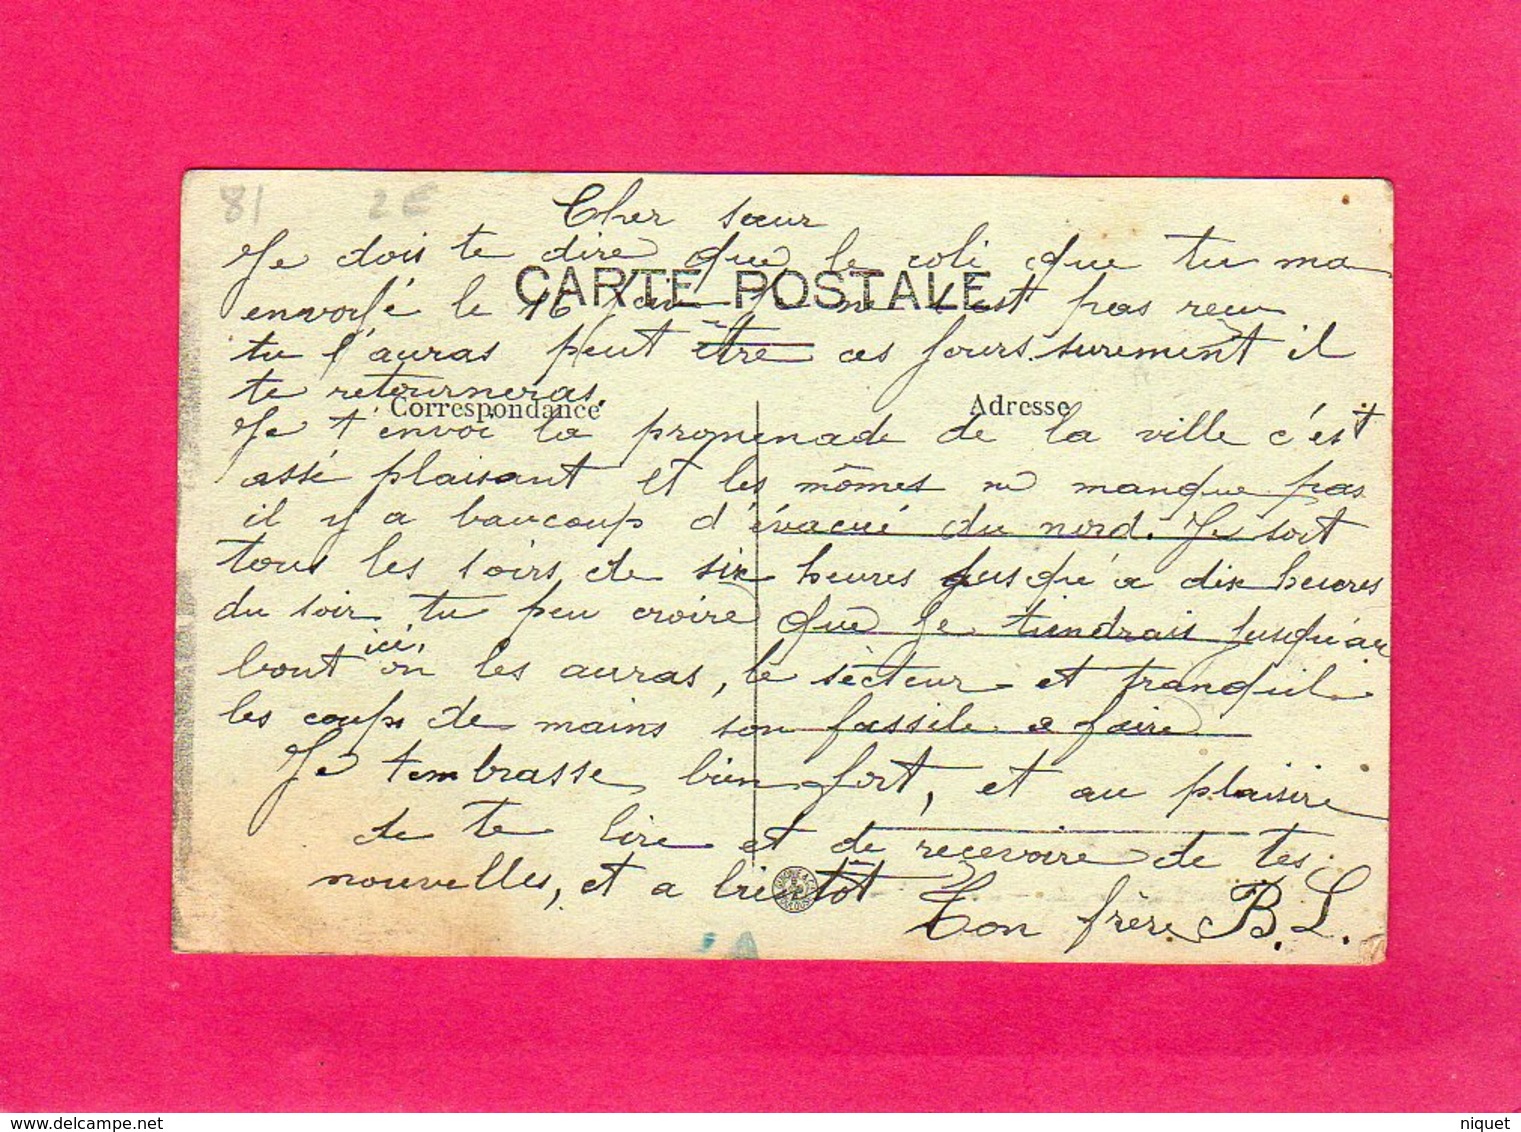 81 2€
Cher sœur
Je dois te dire que le coli que tu ma
CARTE POSTALE
envoyé le 16 je ne l'est pas reçu
tu l'auras peut être ces jours surement il
te retourneras.
Correspondance Adresse
Je t'envoi la promenade de la ville c'est
assé plaisant et les mômes ne manque pas
il y a baucoup d'évacué du nord. Je sort
tous les soirs de six heures jusqu'a dix heures
du soir, tu peu croire que je tiendrais jusqu'au
bout ici, on les auras, le sècteur et tranquil
les coups de mains son fassile a faire
Je t'embrasse bien fort, et au plaisire
de te lire et de recevoire de tes
nouvelles, et a bientôt Ton frère B. L.
delcampe.net
niquet